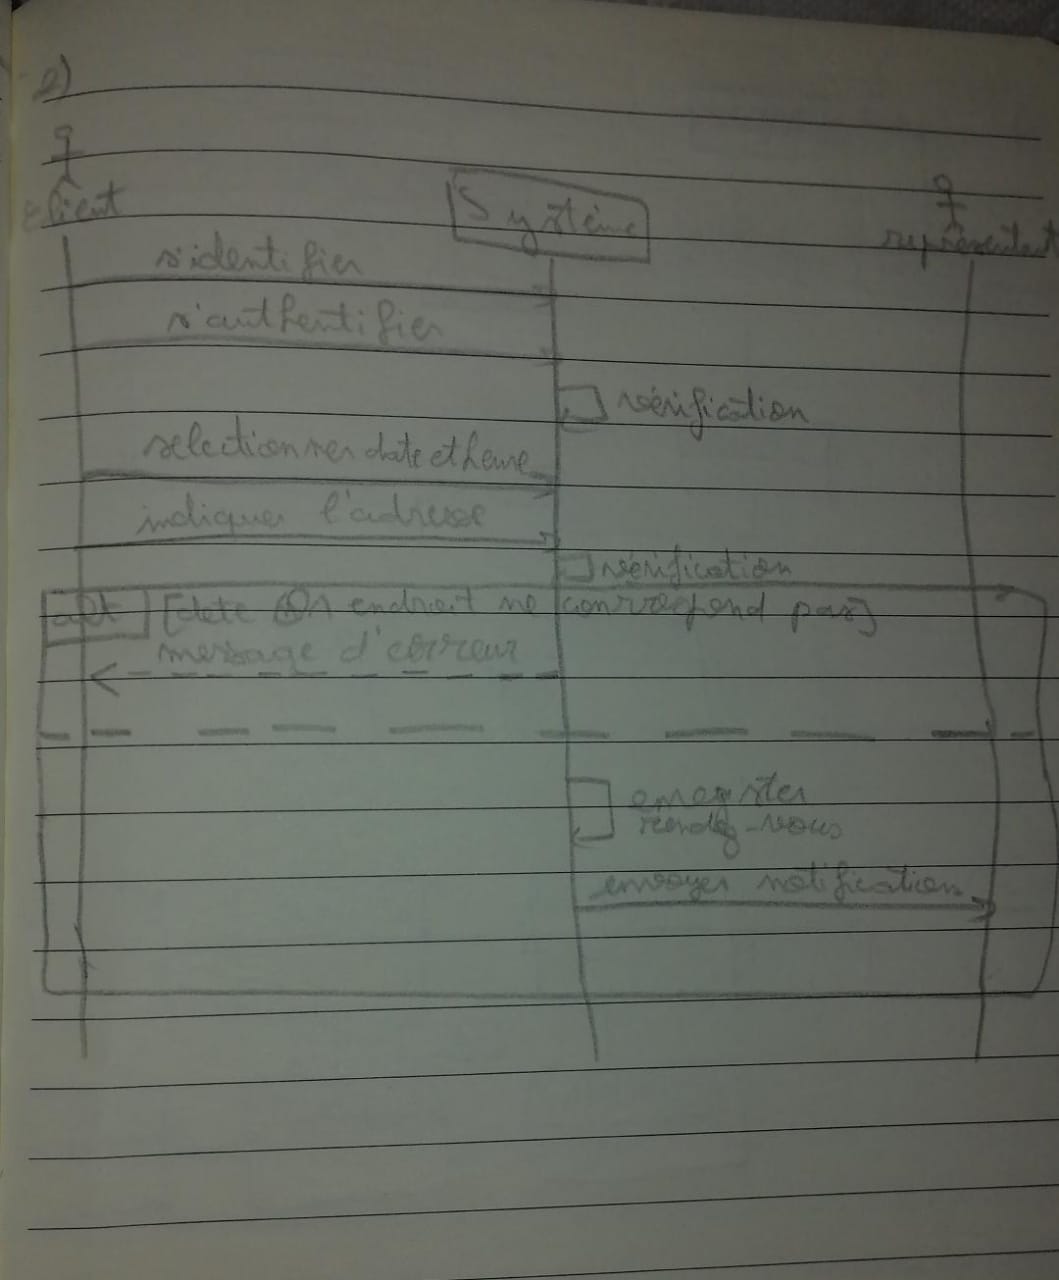 2)
client
Système
représentant
s'identifier
s'authentifier
vérification
selectionner date et heure
indiquer l'adresse
vérification
alt [date OR endroit ne correspond pas]
message d'erreur
enregister
rendez-vous
envoyer notification